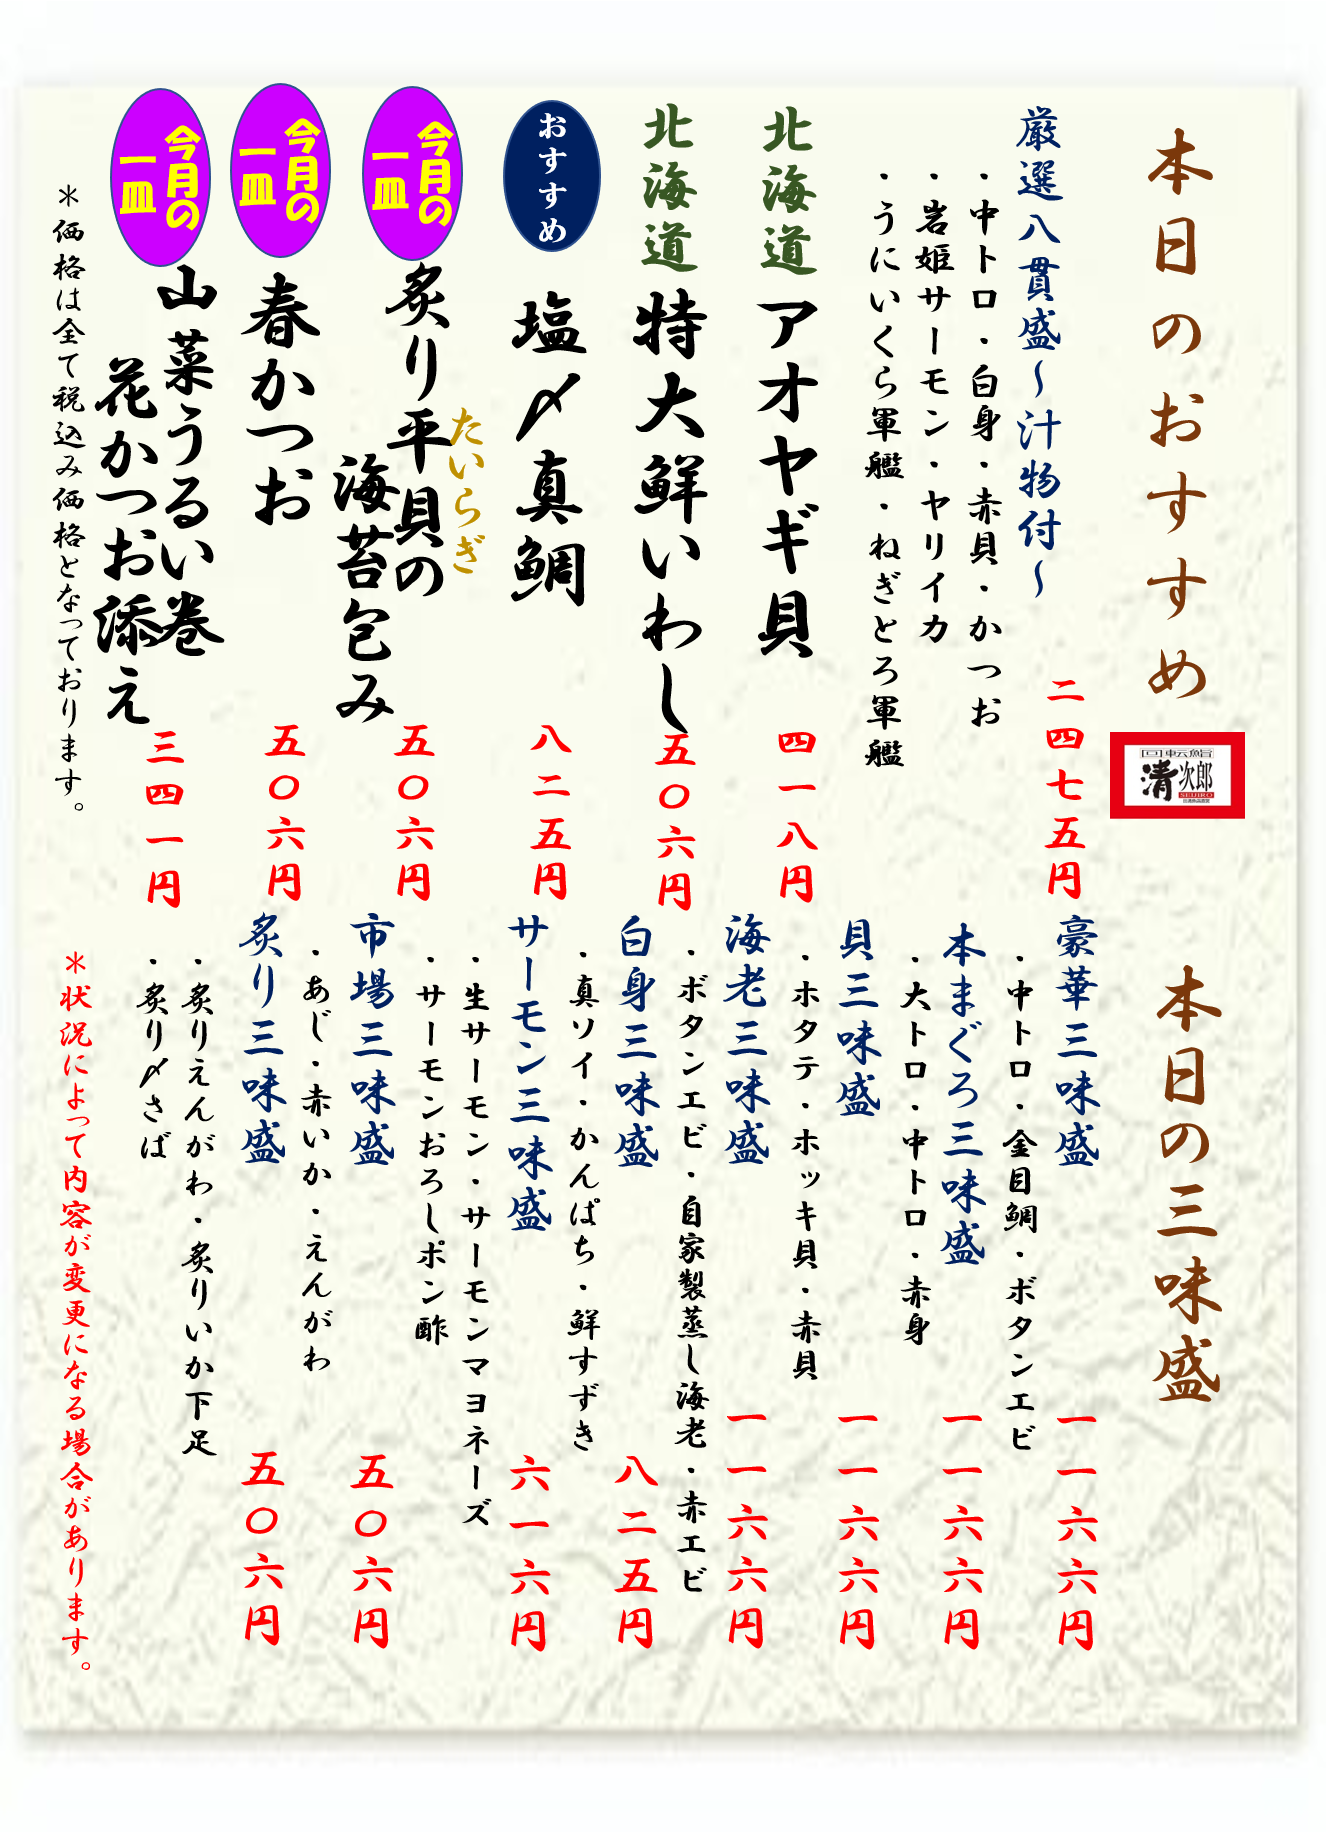 本日のおすすめ
回転鮨
清次郎
SEIJIRO
厳選八貫盛～汁物付～
二四七五円
・中トロ・白身・赤貝・かつお
・岩姫サーモン・ヤリイカ
・うにいくら軍艦・ねぎとろ軍艦
北海道 アオヤギ貝 四一八円
北海道 特大鮮いわし 五〇六円
おすすめ 塩〆真鯛 八二五円
今月の
一皿
たいらぎ
炙り平貝の
海苔包み
五〇六円
今月の
一皿
春かつお 五〇六円
今月の
一皿
山菜うるい巻
花かつお添え
三四一円
＊価格は全て税込み価格となっております。
本日の三味盛
豪華三味盛 一一六六円
・中トロ・金目鯛・ボタンエビ
本まぐろ三味盛 一一六六円
・大トロ・中トロ・赤身
貝三味盛 一一六六円
・ホタテ・ホッキ貝・赤貝
海老三味盛 一一六六円
・ボタンエビ・自家製蒸し海老・赤エビ
白身三味盛 八二五円
・真ソイ・かんぱち・鮮すずき
サーモン三味盛 六一六円
・生サーモン・サーモンマヨネーズ
・サーモンおろしポン酢
市場三味盛 五〇六円
・あじ・赤いか・えんがわ
炙り三味盛 五〇六円
・炙りえんがわ・炙りいか下足
・炙り〆さば
＊状況によって内容が変更になる場合があります。